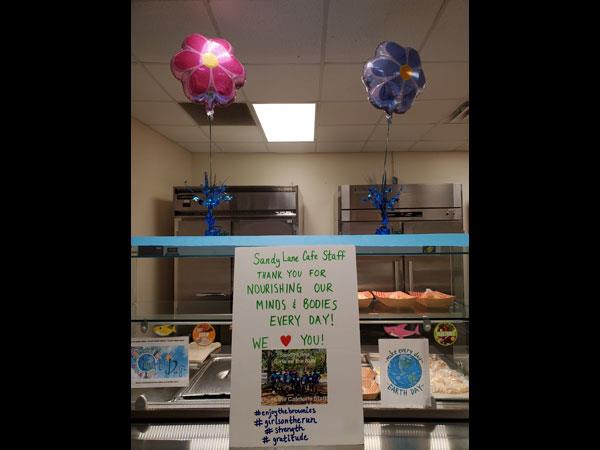 Sandy Lane Cafe Staff
THANK YOU FOR
NOURISHING OUR
MINDS & BODIES
EVERY DAY!
WE ❤ YOU!
Sandy Lane
Girls on the Run
the Cafeteria Staff
#enjoythebrownies
#girlsontherun
# strength
# gratitude
make every day
EARTH DAY